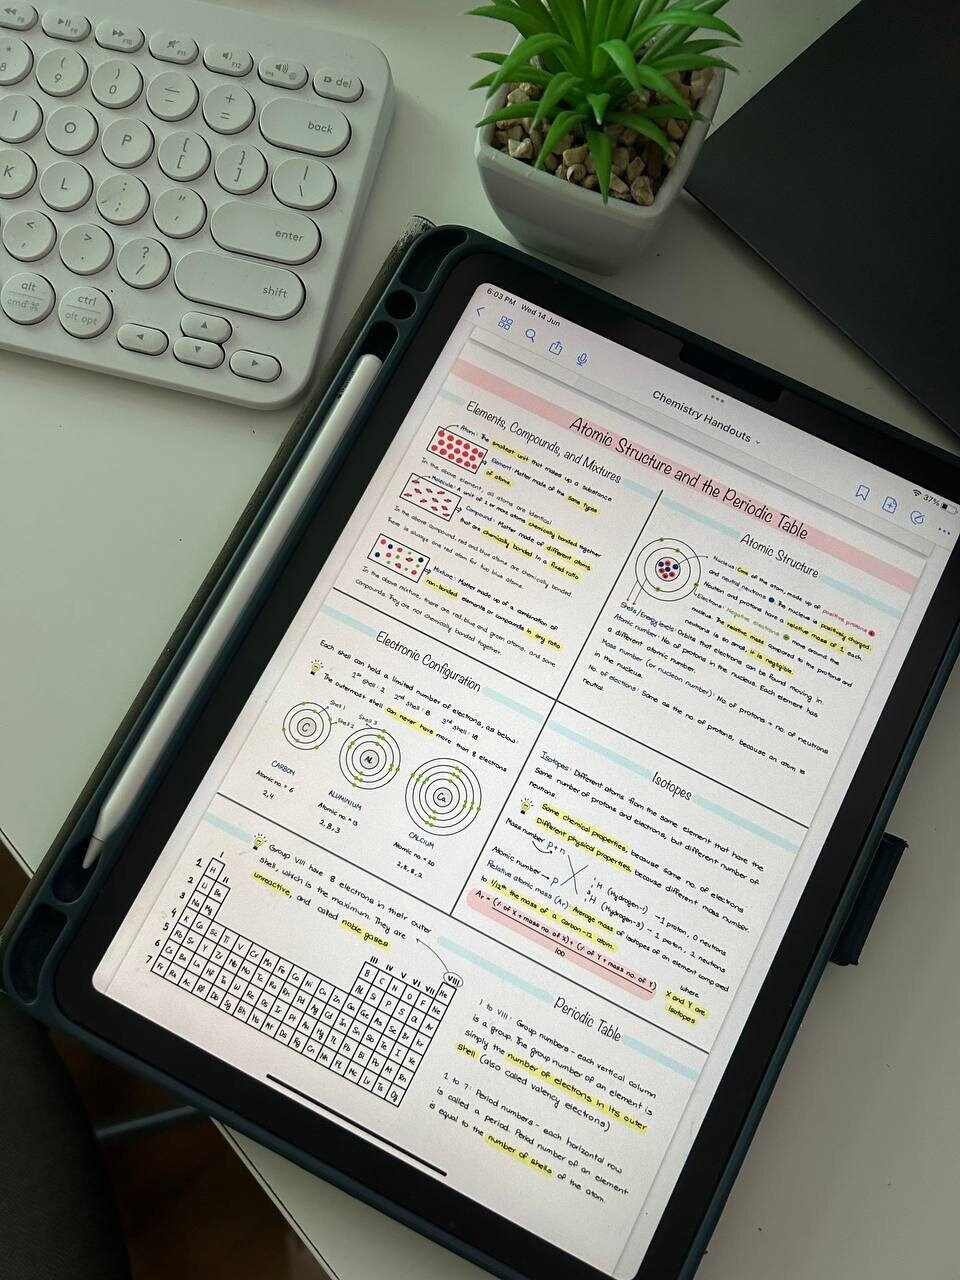 F9
F10
F11
F12
ins
del
8
( 9
) 0
_ -
+ =
back
I
O
P
{ [
} ]
| \
K
L
: ;
" '
enter
< ,
> .
? /
shift
alt
cmd ⌘
ctrl
alt opt
6:03 PM Wed 14 Jun
37%
Chemistry Handouts
Atomic Structure and the Periodic Table
Elements, Compounds, and Mixtures
Atom: The smallest unit that makes up a substance
Element: Matter made of the same type
of atoms
In the above element, all atoms are identical
Molecule: A unit of 2 or more atoms chemically bonded together
Compound: Matter made of different atoms
that are chemically bonded in a fixed ratio
In the above compound, red and blue atoms are chemically bonded.
There is always one red atom for two blue atoms.
Mixture: Matter made up of a combination of
non-bonded elements or compounds in any ratio
In the above mixture, there are red, blue and green atoms, and some
compounds. They are not chemically bonded together.
Atomic Structure
Nucleus: Core of the atom, made up of positive protons
and neutral neutrons. The nucleus is positively charged
Neutron and protons have a relative mass of 1 each
Electrons: Negative electrons move around the
nucleus. The relative mass compared to the protons and
neutrons is so small, it is negligible.
Shells/Energy levels: Orbits that electrons can be found moving in.
Atomic number: No. of protons in the nucleus. Each element has
a different atomic number.
Mass number (or nucleon number): No. of protons + no. of neutrons
in the nucleus.
No. of electrons: Same as the no. of protons, because an atom is
neutral
Electronic Configuration
Each shell can hold a limited number of electrons, as below:
1st shell: 2 2nd shell: 8 3rd shell: 18
The outermost shell can never have more than 8 electrons
Shell 1
Shell 2
Shell 3
C
Al
Ca
CARBON
Atomic no. = 6
2,4
ALUMINIUM
Atomic no. = 13
2, 8, 3
CALCIUM
Atomic no. = 20
2, 8, 8, 2
Isotopes
Isotopes: Different atoms from the same element that have the
same number of protons and electrons, but different number of
neutrons.
Same chemical properties, because same no. of electrons
Different physical properties, because different mass number.
Mass number P+n
Atomic number → P
H (Hydrogen-1) → 1 proton, 0 neutrons
H (Hydrogen-3) → 1 proton, 2 neutrons
Relative atomic mass (Ar): Average mass of isotopes of an element compared
to 1/12th the mass of a carbon-12 atom.
Ar = (% of X + mass no. of X) + (% of Y + mass no. of Y)
100
where
X and Y are
isotopes
Group VIII have 8 electrons in their outer
shell, which is the maximum. They are
unreactive, and called noble gases
I
II
III IV V VI VII VIII
1 H He
2 Li Be B C N O F Ne
3 Na Mg Al Si P S Cl Ar
4 K Ca Sc Ti V Cr Mn Fe Co Ni Cu Zn Ga Ge As Se Br Kr
5 Rb Sr Y Zr Nb Mo Tc Ru Rh Pd Ag Cd In Sn Sb Te I Xe
6 Cs Ba La Hf Ta W Re Os Ir Pt Au Hg Tl Pb Bi Po At Rn
7 Fr Ra Ac Rf Db Sg Bh Hs Mt Ds Rg Cn Nh Fl Mc Lv Ts Og
Periodic Table
I to VIII: Group numbers - each vertical column
is a group. The group number of an element is
simply the number of electrons in its outer
shell (also called valency electrons)
1 to 7: Period numbers - each horizontal row
is called a period. Period number of an element
is equal to the number of shells of the atom.